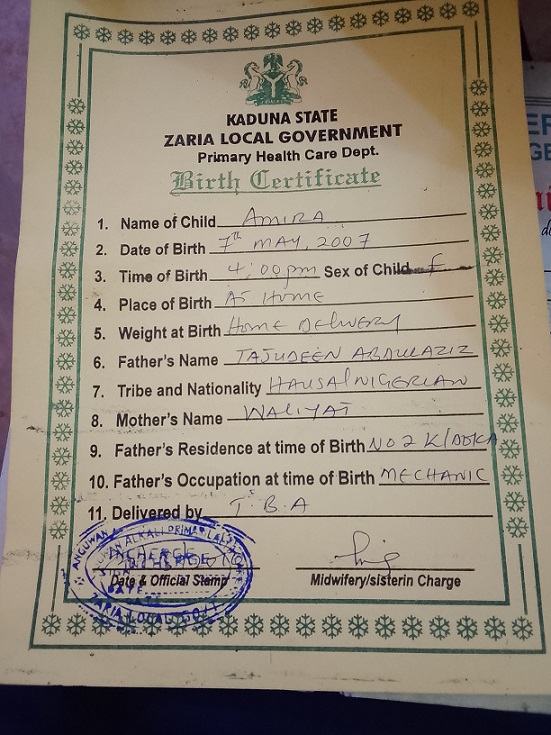 KADUNA STATE
ZARIA LOCAL GOVERNMENT
Primary Health Care Dept.
Birth Certificate
1. Name of Child AMIRA
2. Date of Birth 7th MAY, 2007
3. Time of Birth 4:00pm Sex of Child F
4. Place of Birth At HOME
5. Weight at Birth HOME DELIVERY
6. Father's Name TAJUDEEN ABDULAZIZ
7. Tribe and Nationality HAUSA/NIGERIAN
8. Mother's Name WALIYAT
9. Father's Residence at time of Birth NO 2 K/DOKA
10. Father's Occupation at time of Birth MECHANIC
11. Delivered by T.B.A
ANGUWAN ALKALI PRIMARY
INCHARGE
DATE
ZARIA LOCAL GOVT
Date & Official Stamp Midwifery/sisterin Charge